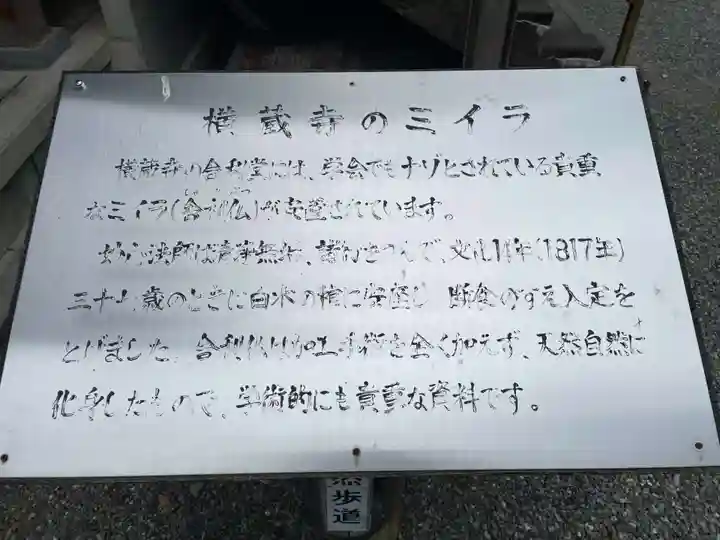 横蔵寺のミイラ
横蔵寺の舎利堂には、学会でもナゾとされている貴重
なミイラ(舎利仏)が安置されています。
妙心法師は清浄無垢、諸行をつんで、文化14年(1817年)
三十六歳のときに白木の棺に安座し 断食のすえ入定を
とげました。舎利仏は加工手術を全く加えず、天然自然に
化身したもので、学術的にも貴重な資料です。
然歩道